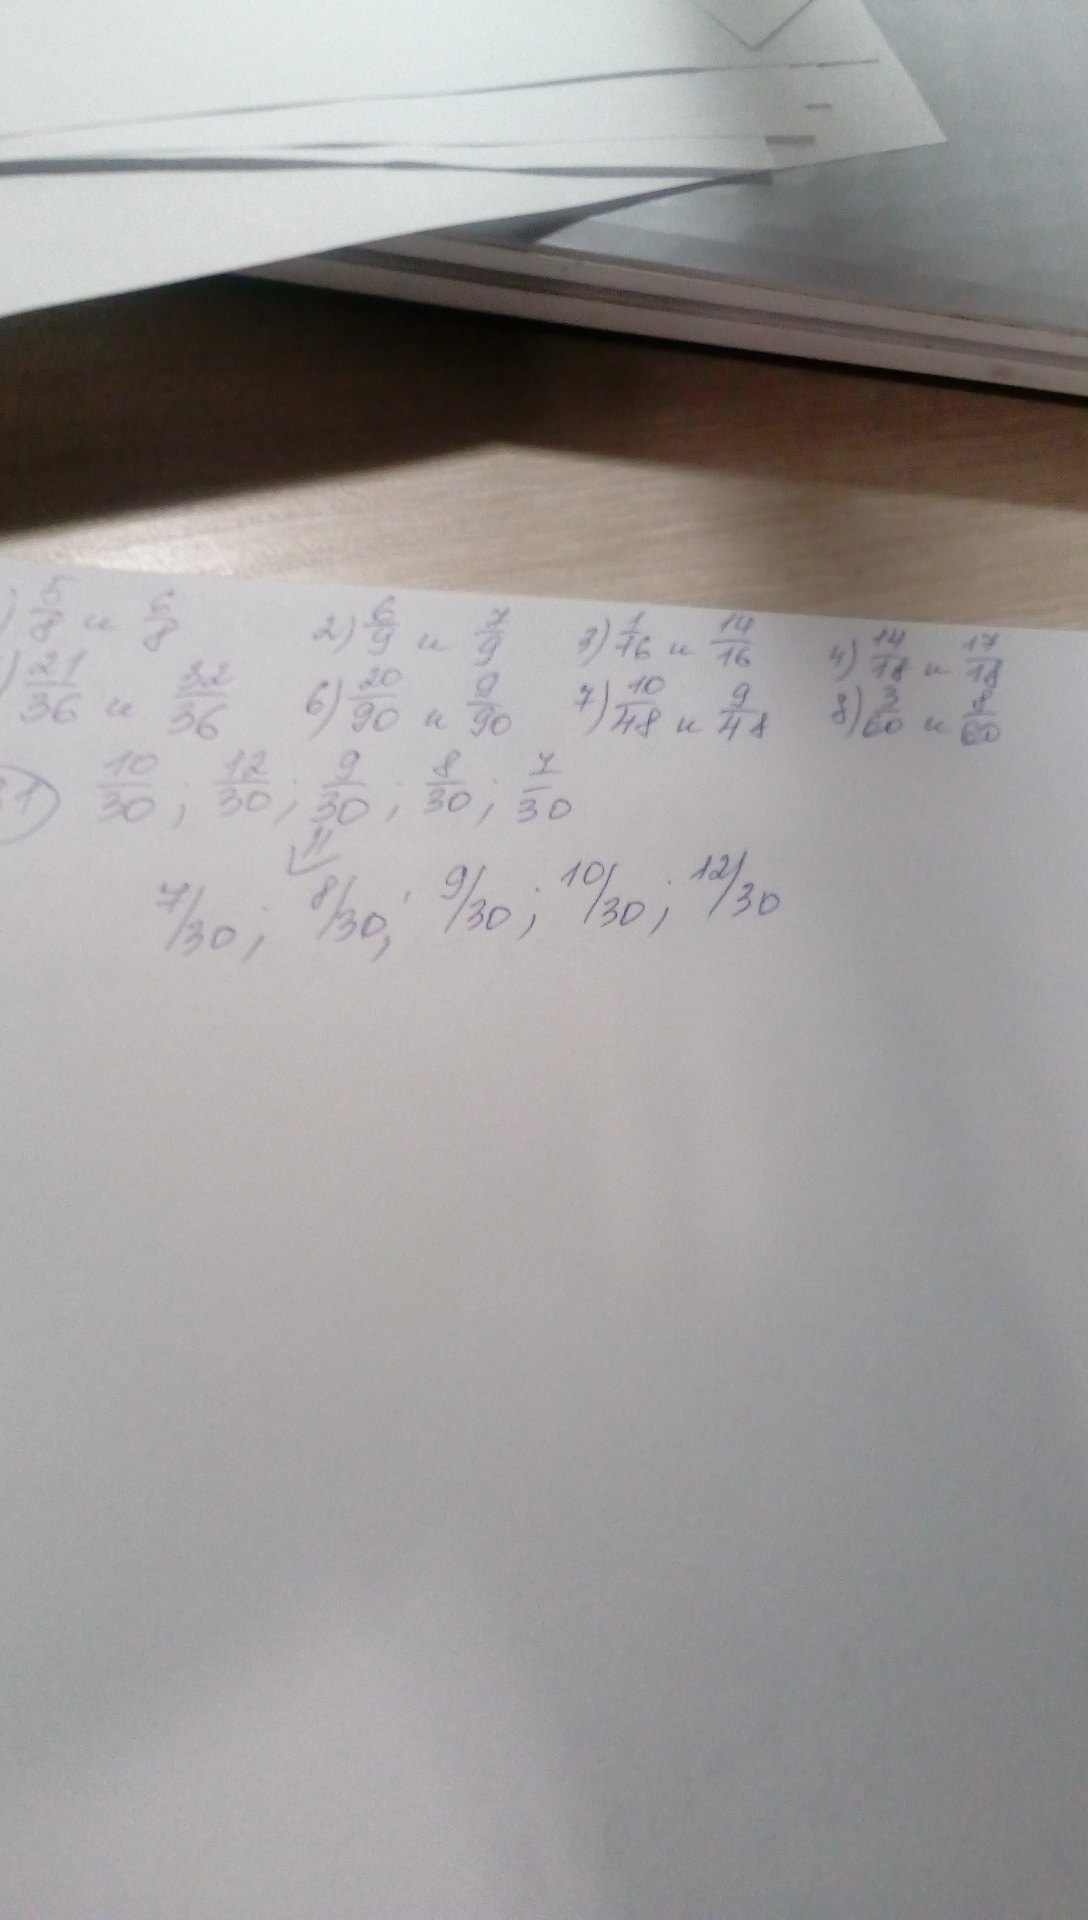 ) 5/8 и 6/8 2) 6/9 и 7/9 3) 1/16 и 14/16 4) 14/18 и 17/18
) 21/36 и 32/36 6) 20/90 и 9/90 7) 10/48 и 9/48 8) 3/60 и 8/60
1) 10/30 ; 12/30 ; 9/30 ; 8/30 ; 7/30
7/30 ; 8/30 ; 9/30 ; 10/30 ; 12/30